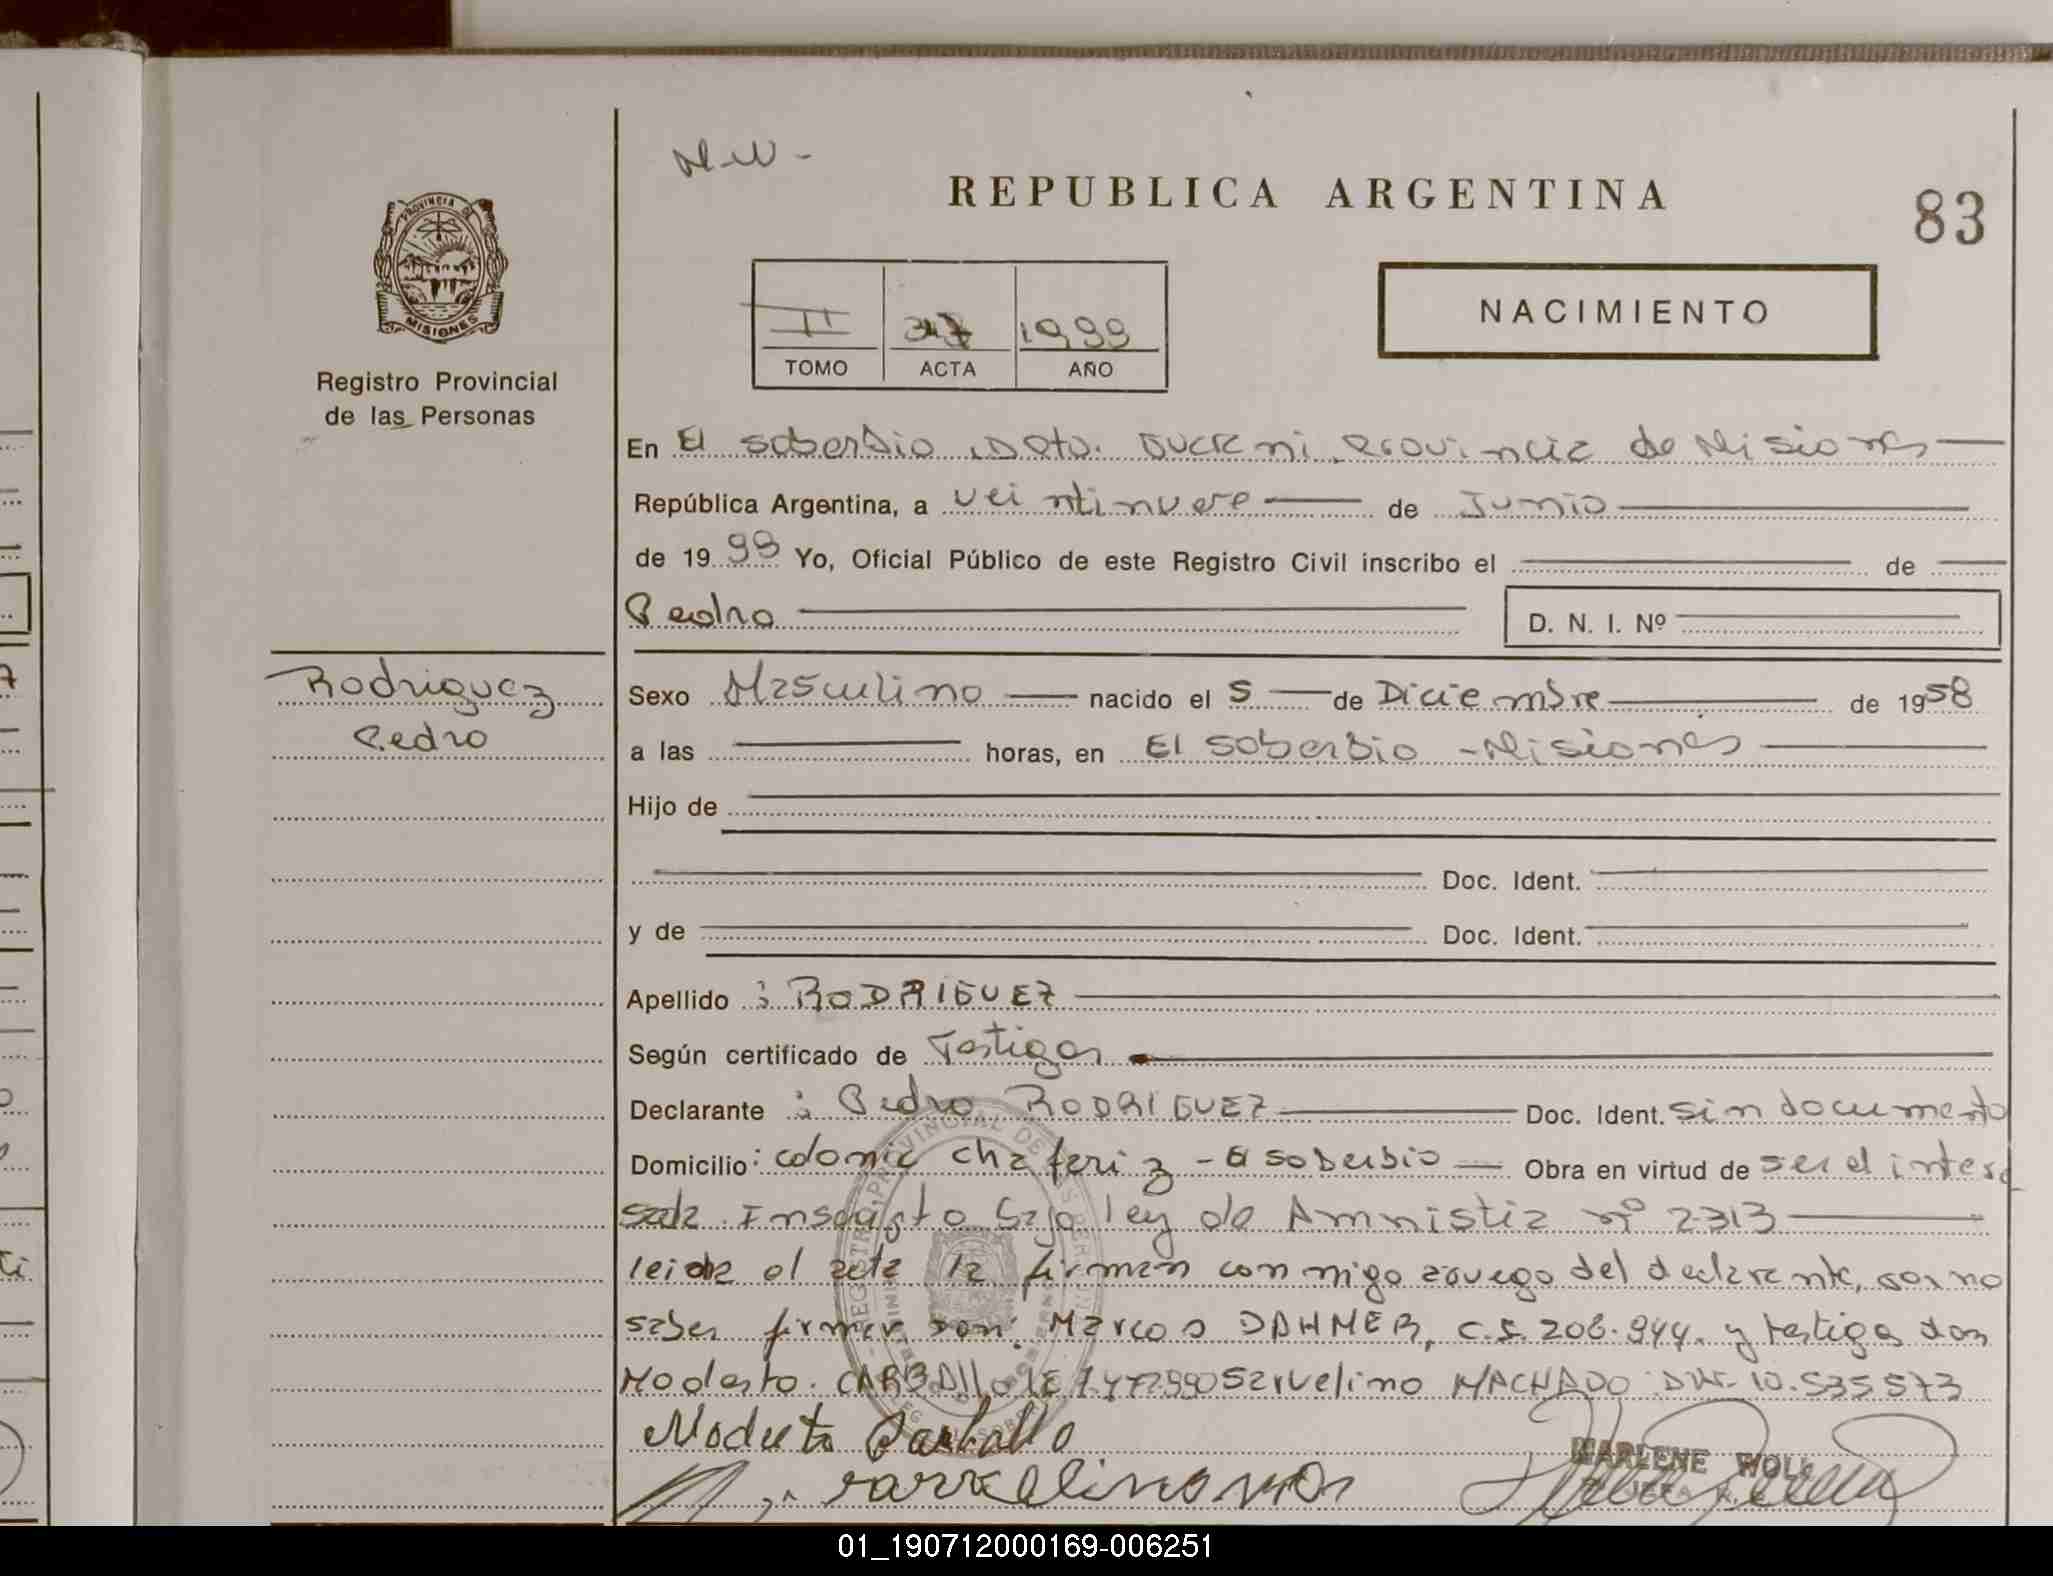 M.W-
REPUBLICA ARGENTINA
83
PROVINCIA DE
MISIONES
Registro Provincial
de las Personas
II 347 1999
TOMO ACTA AÑO
NACIMIENTO
En El soberbio, Dpto. Guarani, Provincia de Misiones
República Argentina, a veintinueve de Junio
de 1999 Yo, Oficial Público de este Registro Civil inscribo el de
Pedro
D. N. I. Nº
Rodriguez
Pedro
Sexo Masculino nacido el 5 de Diciembre de 1958
a las horas, en El soberbio - Misiones
Hijo de
Doc. Ident.
y de Doc. Ident.
Apellido : RODRIGUEZ
Según certificado de Testigos
Declarante : Pedro RODRIGUEZ Doc. Ident. sin documento
Domicilio: colonia chafariz - El soberbio Obra en virtud de ser el intere
sada. Inscripto bajo ley de Amnistia nº 2313
leida el acta la firman conmigo aruego del declarante, por no
saber firmar don: Marcos DAHMER, c.I. 206.944. y testigos don
Modesto CARBALLO LE 7.477.990 Sarvelino MACHADO DNI- 10.535573
Modesto Carballo
MARLENE WOLL
01_190712000169-006251